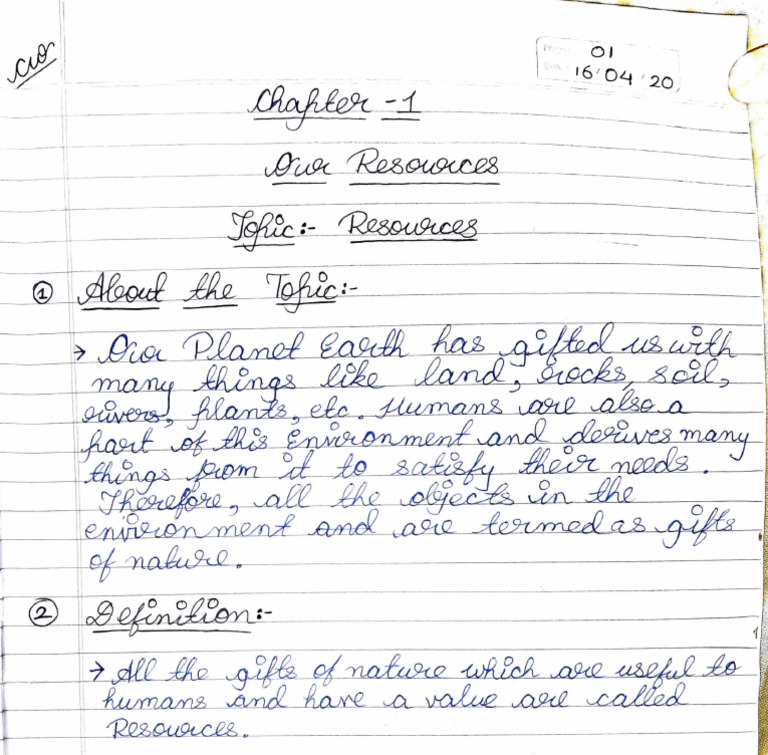 C.W.
Page: 01
Date: 16/04/20
Chapter -1
Our Resources
Topic:- Resources
① About the Topic:-
→ Our Planet Earth has gifted us with
many things like land, rocks, soil,
rivers, plants, etc. Humans are also a
part of this Environment and derives many
things from it to satisfy their needs.
Therefore, all the objects in the
environment and are termed as gifts
of nature.
② Definition:-
→ All the gifts of nature which are useful to
humans and have a value are called
Resources.